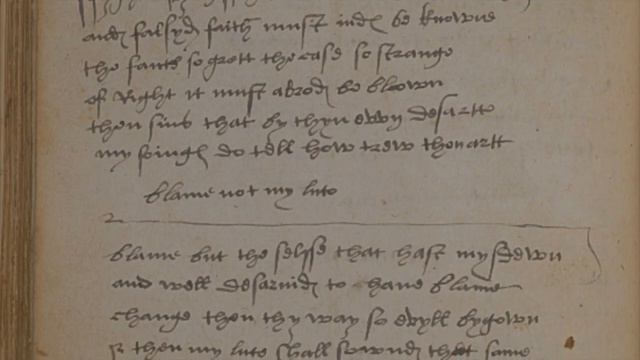 and falsyd faith must nedes be knowne
the faute so grett the case so strange
of Right it must abrod be blown
then sins that by thyn own desartte
my songes do tell how trew thou artt
blame not my lute
blame but the selffe that hast mysdown
and well desarvid to have blame
change then thy way so evyll bygown
& then my lute shall sownd that same